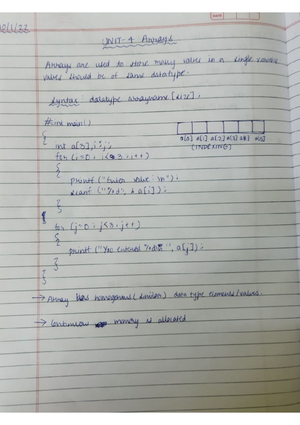 UNIT-4 Arrays
Arrays are used to store many values in a single variable
values should be of same datatype.
Syntax datatype arrayname [size];
int main()
{
int a[3],i,j;
a[0] a[1] a[2] a[3]
(INDEXING)
for (i=0; i<3; i++)
{
printf ("Enter value \n");
scanf ("%d", & a[i]);
}
for (j=0; j<3; j++)
{
printf ("You entered %d", a[j]);
}
}
→ Array has homogenous (similar) data type elements/values.
→ Continuous memory is allocated